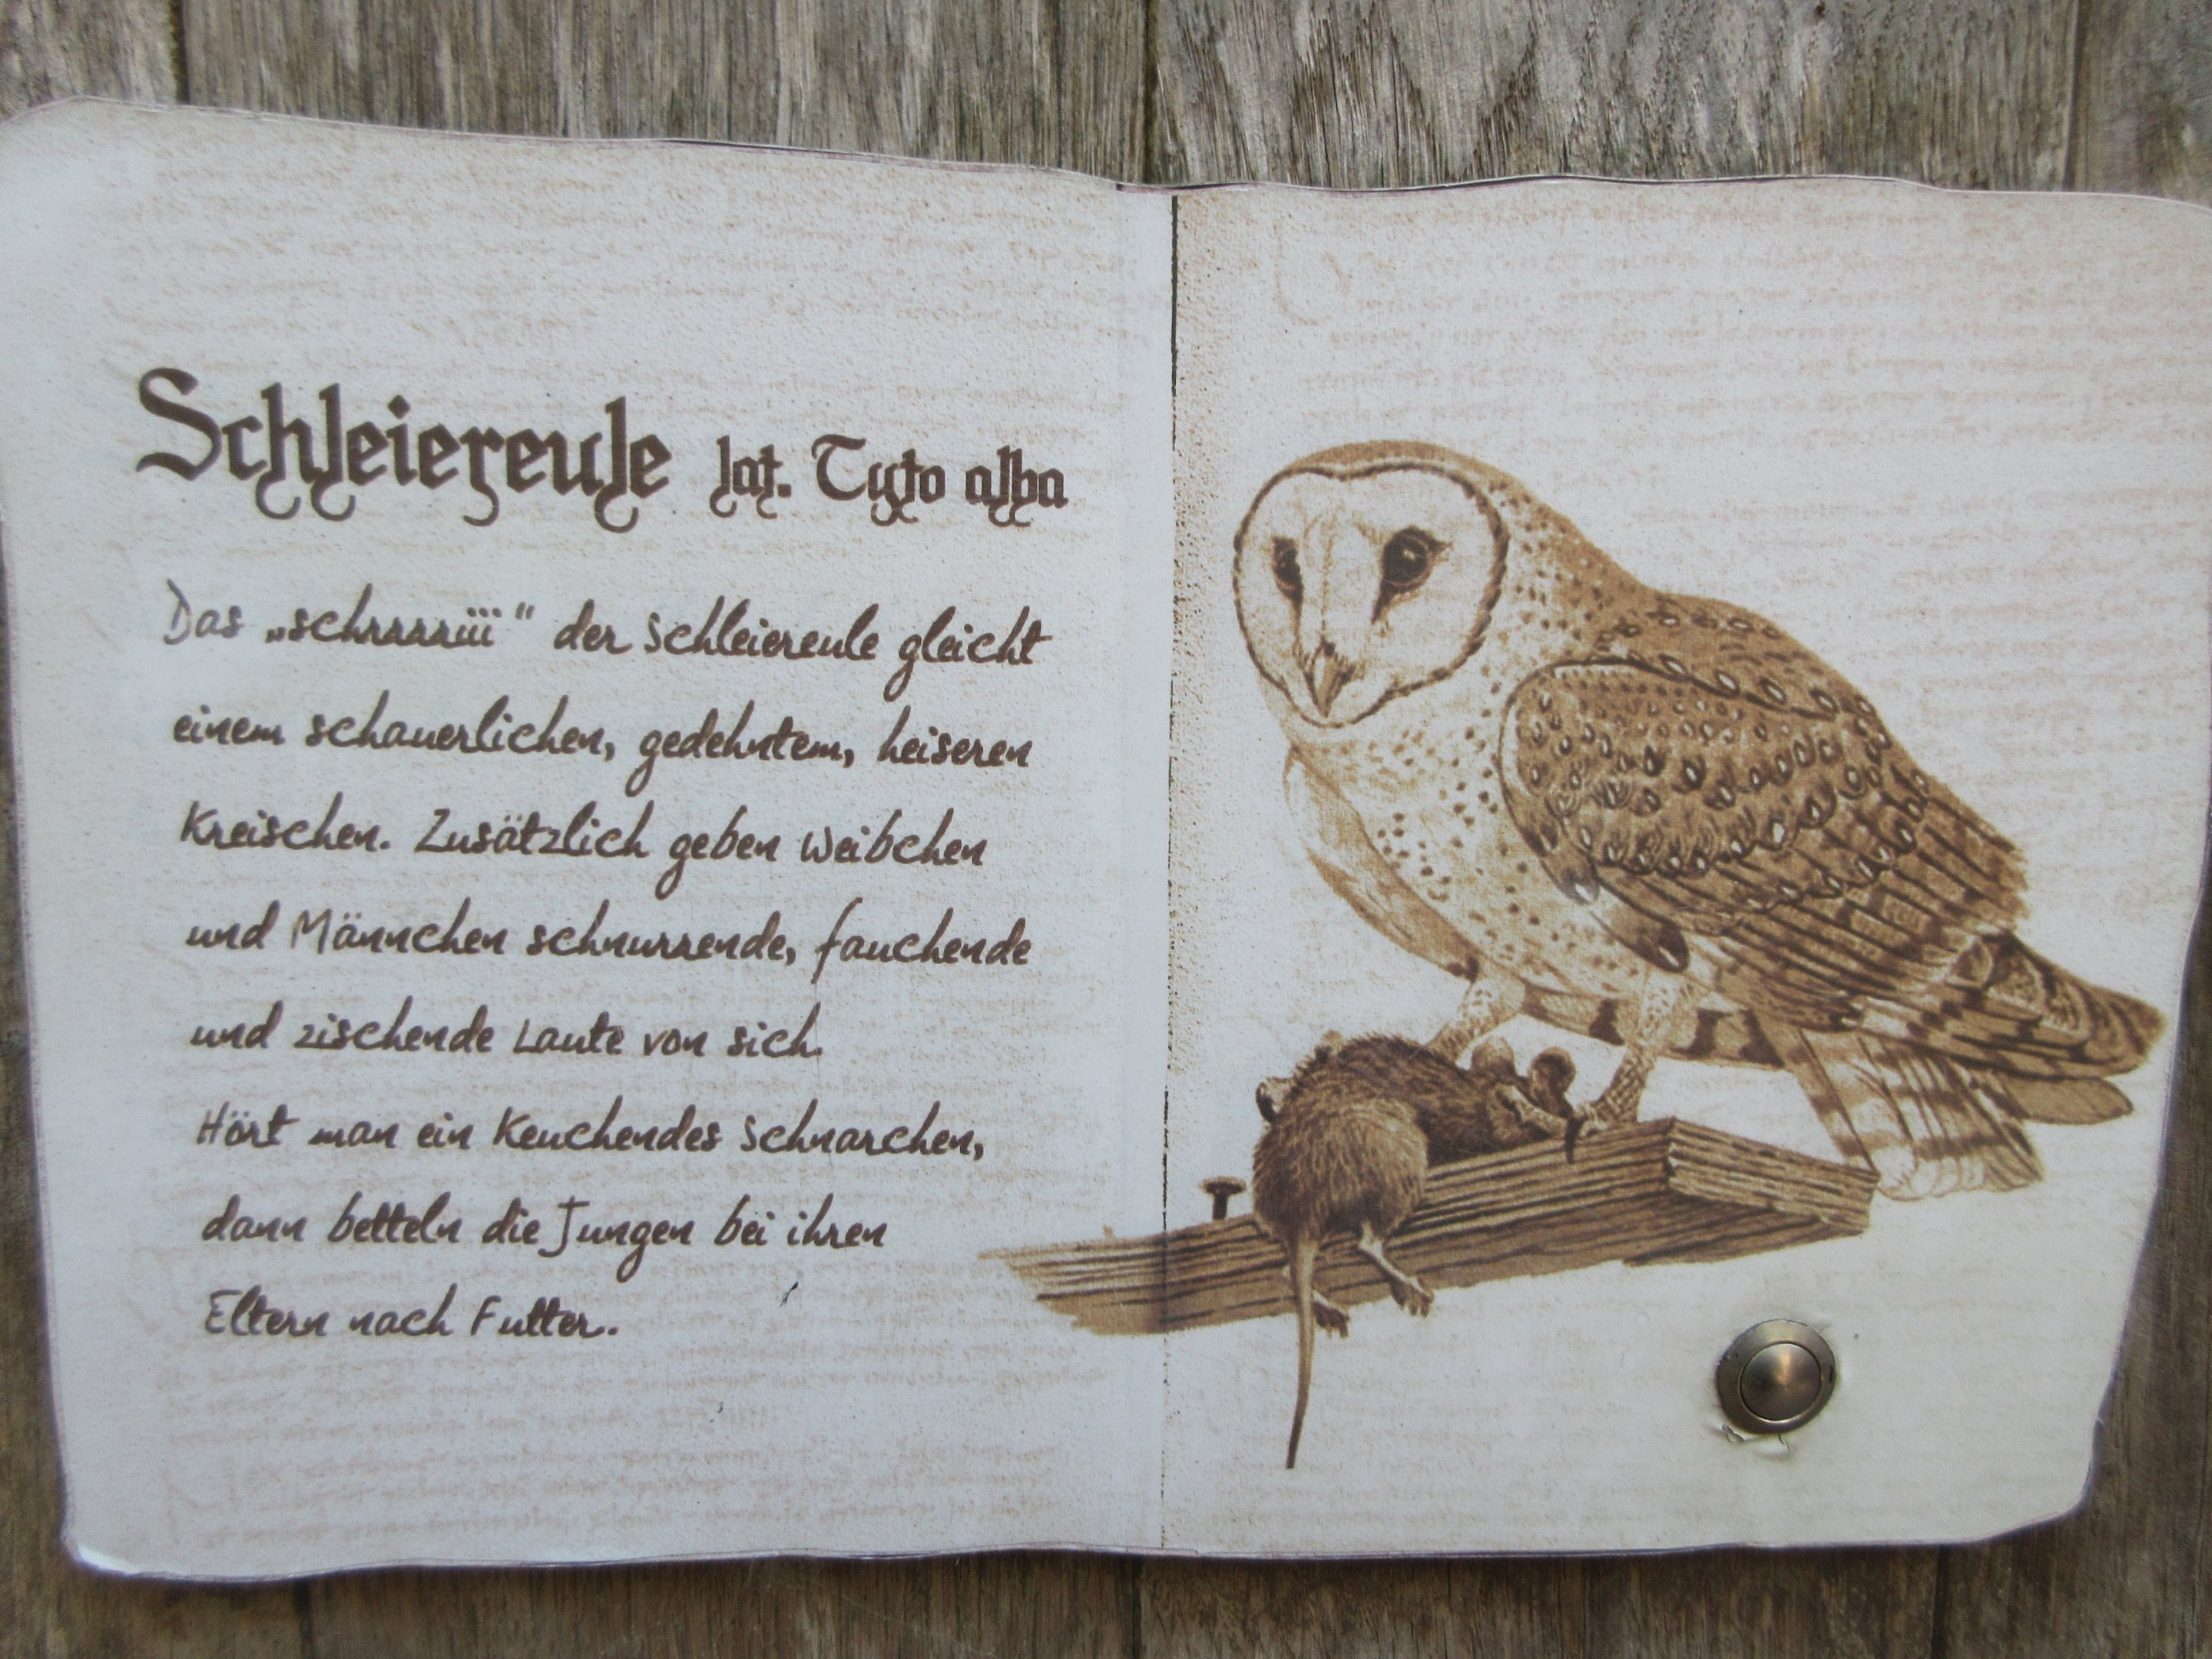 Schleiereule lat. Tyto alba
Das „schrrrrüü“ der Schleiereule gleicht
einem schauerlichen, gedehntem, heiseren
Kreischen. Zusätzlich geben Weibchen
und Männchen schnurrende, fauchende
und zischende Laute von sich.
Hört man ein Keuchendes Schnarchen,
dann betteln die Jungen bei ihren
Eltern nach Futter.